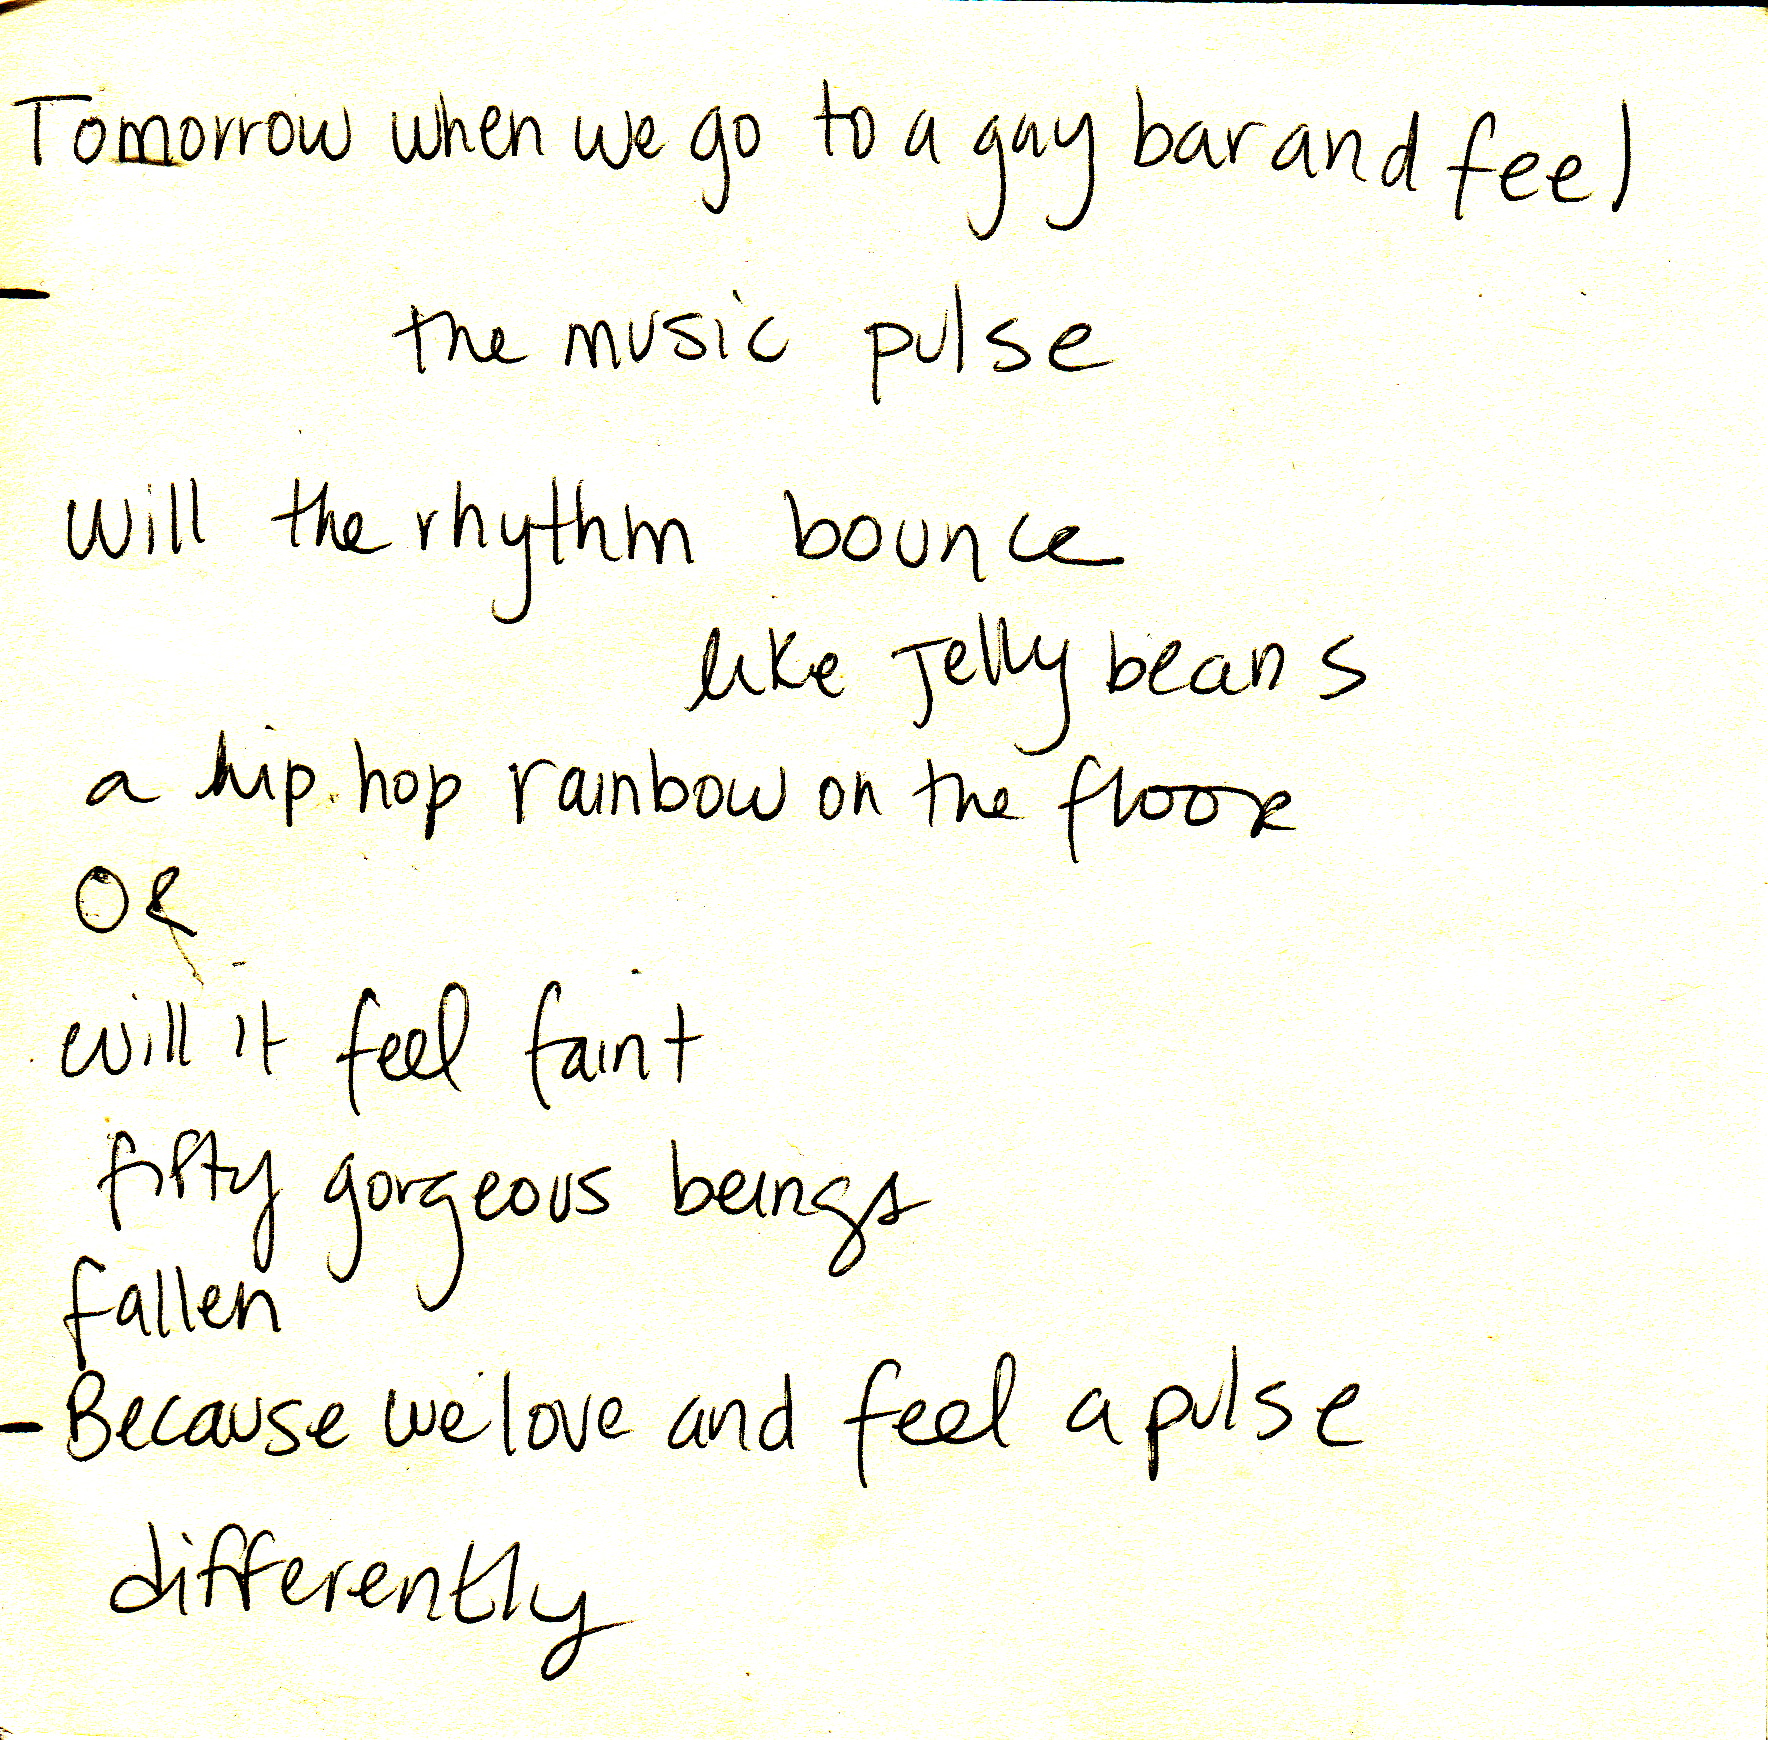 Tomorrow when we go to a gay bar and feel
the music pulse
will the rhythm bounce
like Jelly beans
a hip hop rainbow on the floor
OR
will it feel faint
fifty gorgeous beings
fallen
- Because we love and feel a pulse
differently